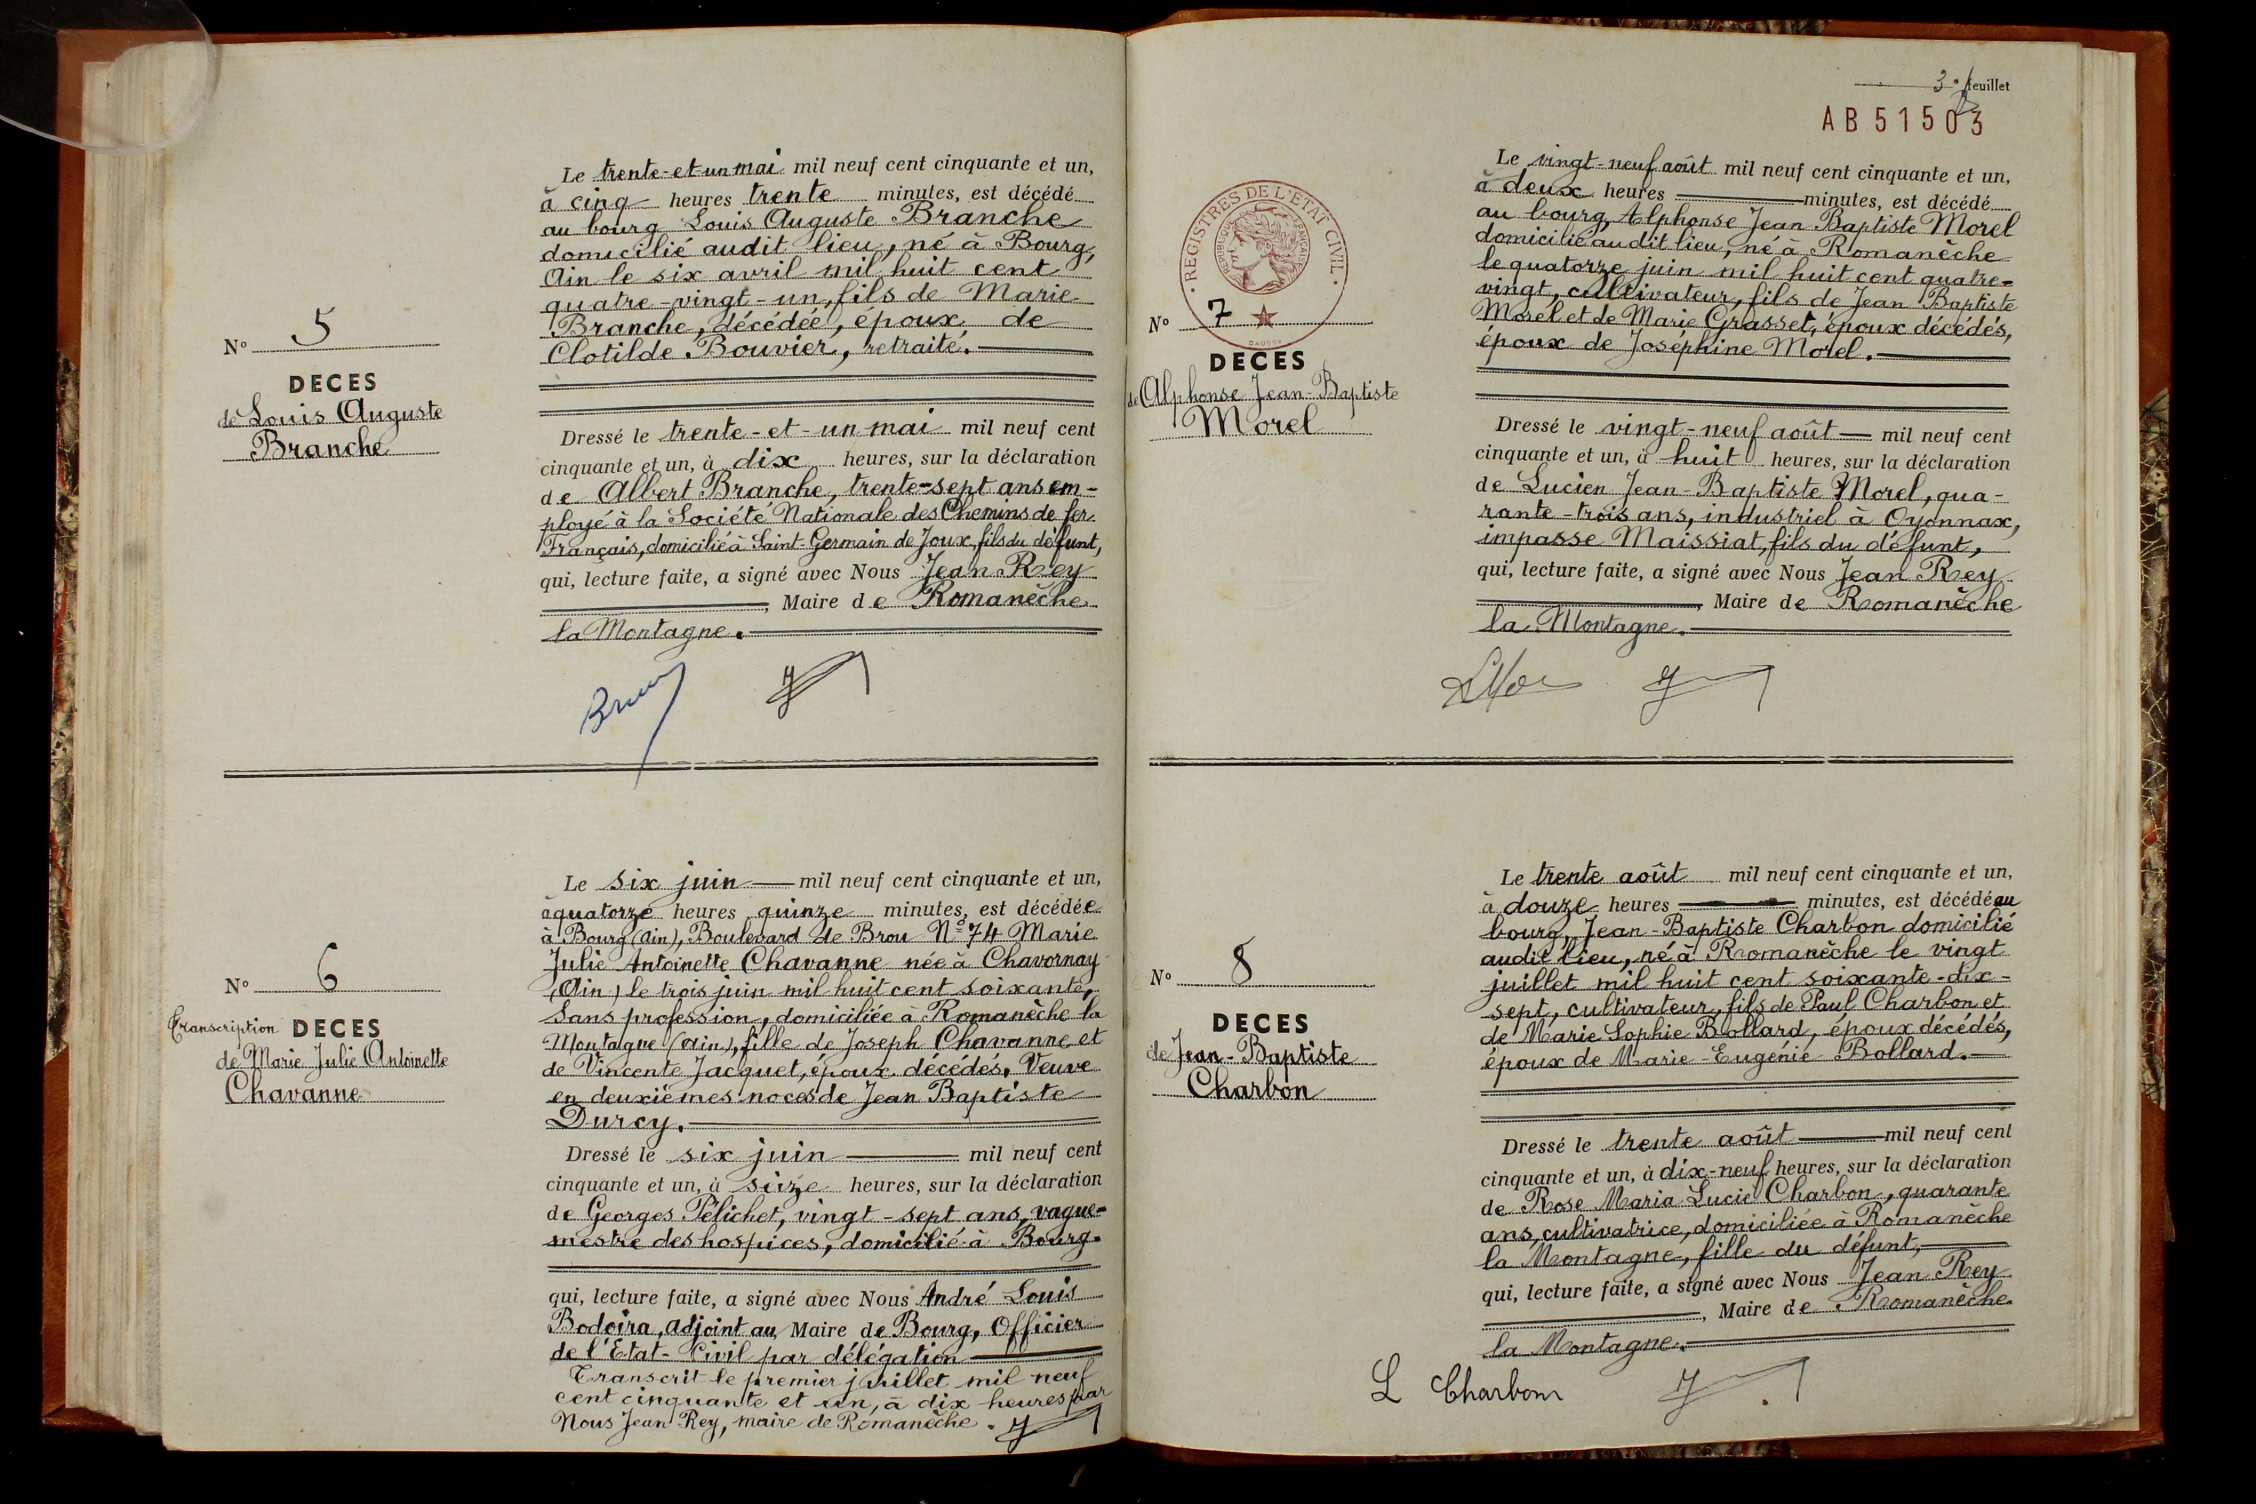 Le trente-et-un mai mil neuf cent cinquante et un,
à cinq heures trente minutes, est décédé
au bourg Louis Auguste Branche
domicilié audit lieu, né à Bourg,
Ain le six avril mil huit cent
quatre-vingt-un, fils de Marie
Branche, décédée, époux de
Clotilde Bouvier, retraité.
N° 5
DECES
de Louis Auguste
Branche
Dressé le trente-et-un mai mil neuf cent
cinquante et un, à dix heures, sur la déclaration
de Albert Branche, trente-sept ans em-
ployé à la Société Nationale des Chemins de fer
Français, domicilié à Saint-Germain de Joux, fils du défunt,
qui, lecture faite, a signé avec Nous Jean Rey
, Maire de Romanèche
la Montagne.
Le six juin mil neuf cent cinquante et un,
à quatorze heures quinze minutes, est décédée
à Bourg (Ain), Boulevard de Brou N° 74 Marie
Julie Antoinette Chavanne née à Chavornay
(Ain) le trois juin mil huit cent soixante,
sans profession, domiciliée à Romanèche la
Montagne (Ain), fille de Joseph Chavanne et
de Vincente Jacquet, époux décédés. Veuve
en deuxièmes noces de Jean Baptiste
Durcy.
N° 6
Transcription DECES
de Marie Julie Antoinette
Chavanne
Dressé le six juin mil neuf cent
cinquante et un, à seize heures, sur la déclaration
de Georges Pélichet, vingt-sept ans, vague-
mestre des hospices, domicilié à Bourg.
qui, lecture faite, a signé avec Nous André Louis
Bodoira, adjoint au Maire de Bourg, Officier
de l'Etat-Civil par délégation
Transcrit le premier juillet mil neuf
cent cinquante et un, à dix heures par
Nous Jean Rey, maire de Romanèche.
3e feuillet
AB51503
REGISTRES DE L'ETAT CIVIL
REPUBLIQUE FRANÇAISE
Le vingt-neuf août mil neuf cent cinquante et un,
à deux heures minutes, est décédé
au bourg, Alphonse Jean Baptiste Morel
domicilié audit lieu, né à Romanèche
le quatorze juin mil huit cent quatre-
vingt, cultivateur, fils de Jean Baptiste
Morel et de Marie Grasset, époux décédés,
époux de Joséphine Morel.
N° 7
DECES
de Alphonse Jean-Baptiste
Morel
Dressé le vingt-neuf août mil neuf cent
cinquante et un, à huit heures, sur la déclaration
de Lucien Jean-Baptiste Morel, qua-
rante-trois ans, industriel à Oyonnax,
impasse Maissiat, fils du défunt,
qui, lecture faite, a signé avec Nous Jean Rey
, Maire de Romanèche
la Montagne.
Le trente août mil neuf cent cinquante et un,
à douze heures minutes, est décédé au
bourg, Jean-Baptiste Charbon domicilié
audit lieu, né à Romanèche le vingt
juillet mil huit cent soixante-dix-
sept, cultivateur, fils de Paul Charbon et
de Marie Sophie Bollard, époux décédés,
époux de Marie-Eugénie Bollard.
N° 8
DECES
de Jean-Baptiste
Charbon
Dressé le trente août mil neuf cent
cinquante et un, à dix-neuf heures, sur la déclaration
de Rose Maria Lucie Charbon, quarante
ans, cultivatrice, domiciliée à Romanèche
la Montagne, fille du défunt,
qui, lecture faite, a signé avec Nous Jean Rey
, Maire de Romanèche
la Montagne.
L Charbon